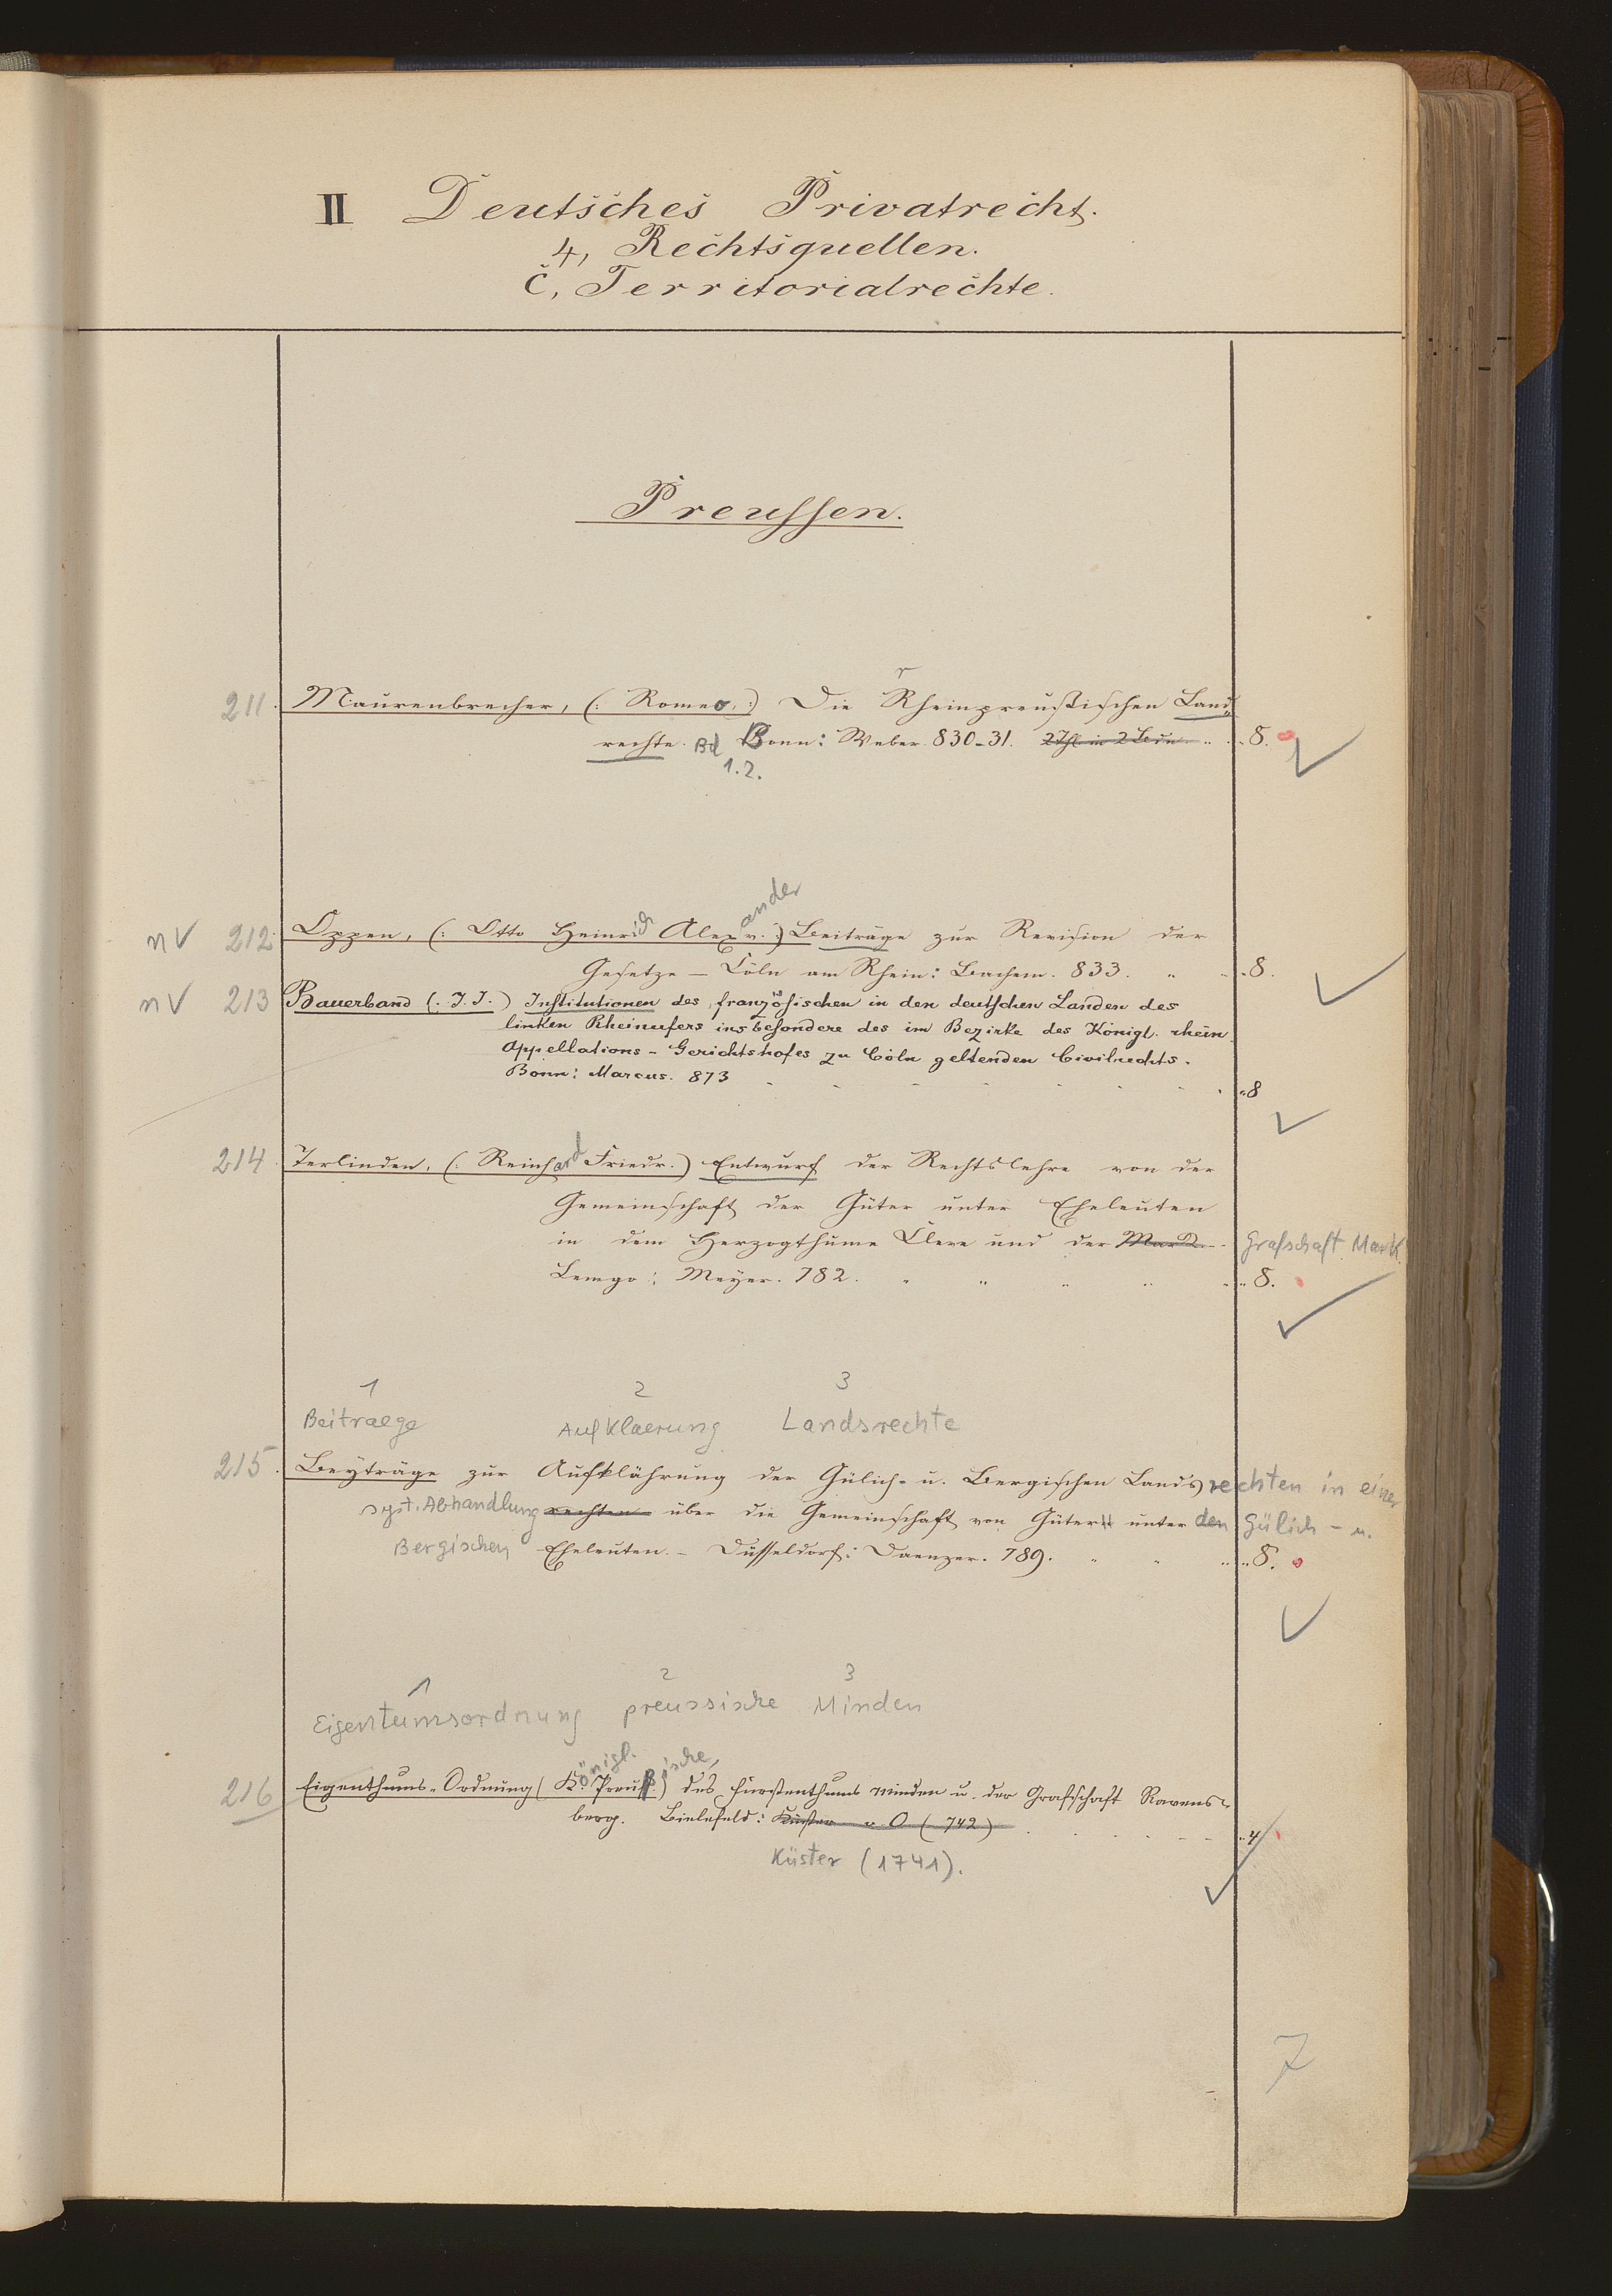 II Deutsches Privatrecht.
4, Rechtsquellen.
C, Territorialrechte.
Preussen.
r
211. Maurenbrecher, (: Romeo. :) Die Rheinpreußischen Land
rechte. Bd Bonn: Weber. 830-31. 2 Thl in 2 Bdn. 8.
1.2.
ander
nV 212. Oppen, (: Otto Heinrich Alex v. :) Beiträge zur Revision der
Gesetze — Cöln am Rhein: Bachem. 833. 8.
nV 213 Bauerband (. J. J. ) Institutionen des französischen in den deutschen Landen des
linken Rheinufers insbesondere des im Bezirke des Königl. rhein.
Appellations-Gerichtshofes zu Cöln geltenden Civilrechts.
Bonn: Marcus. 873 8
214. Terlinden, (: Reinhard Friedr. ) Entwurf der Rechtslehre von der
Gemeinschaft der Güter unter Eheleuten
in dem Herzogthume Cleve und der Mark Grafschaft Mark.
Lemgo: Meyer. 782. 8.
1 2 3
Beitraege Aufklaerung Landsrechte
215. Beyträge zur Aufklährung der Gülich- u. Bergischen Lands rechten in einer
syst. Abhandlung rechten über die Gemeinschaft von Gütern unter den Gülich- u.
Bergischen Eheleuten. — Düsseldorf: Daenzer. 789. 8.
1 2 3
Eigentumsordnung preussische Minden
önigl. ische,
216 Eigenthums-Ordnung (K. Preuß.) des Fürstenthums Minden u. der Grafschaft Ravens-
berg. Bielefeld: Küster (742) 4
Küster (1741).
7